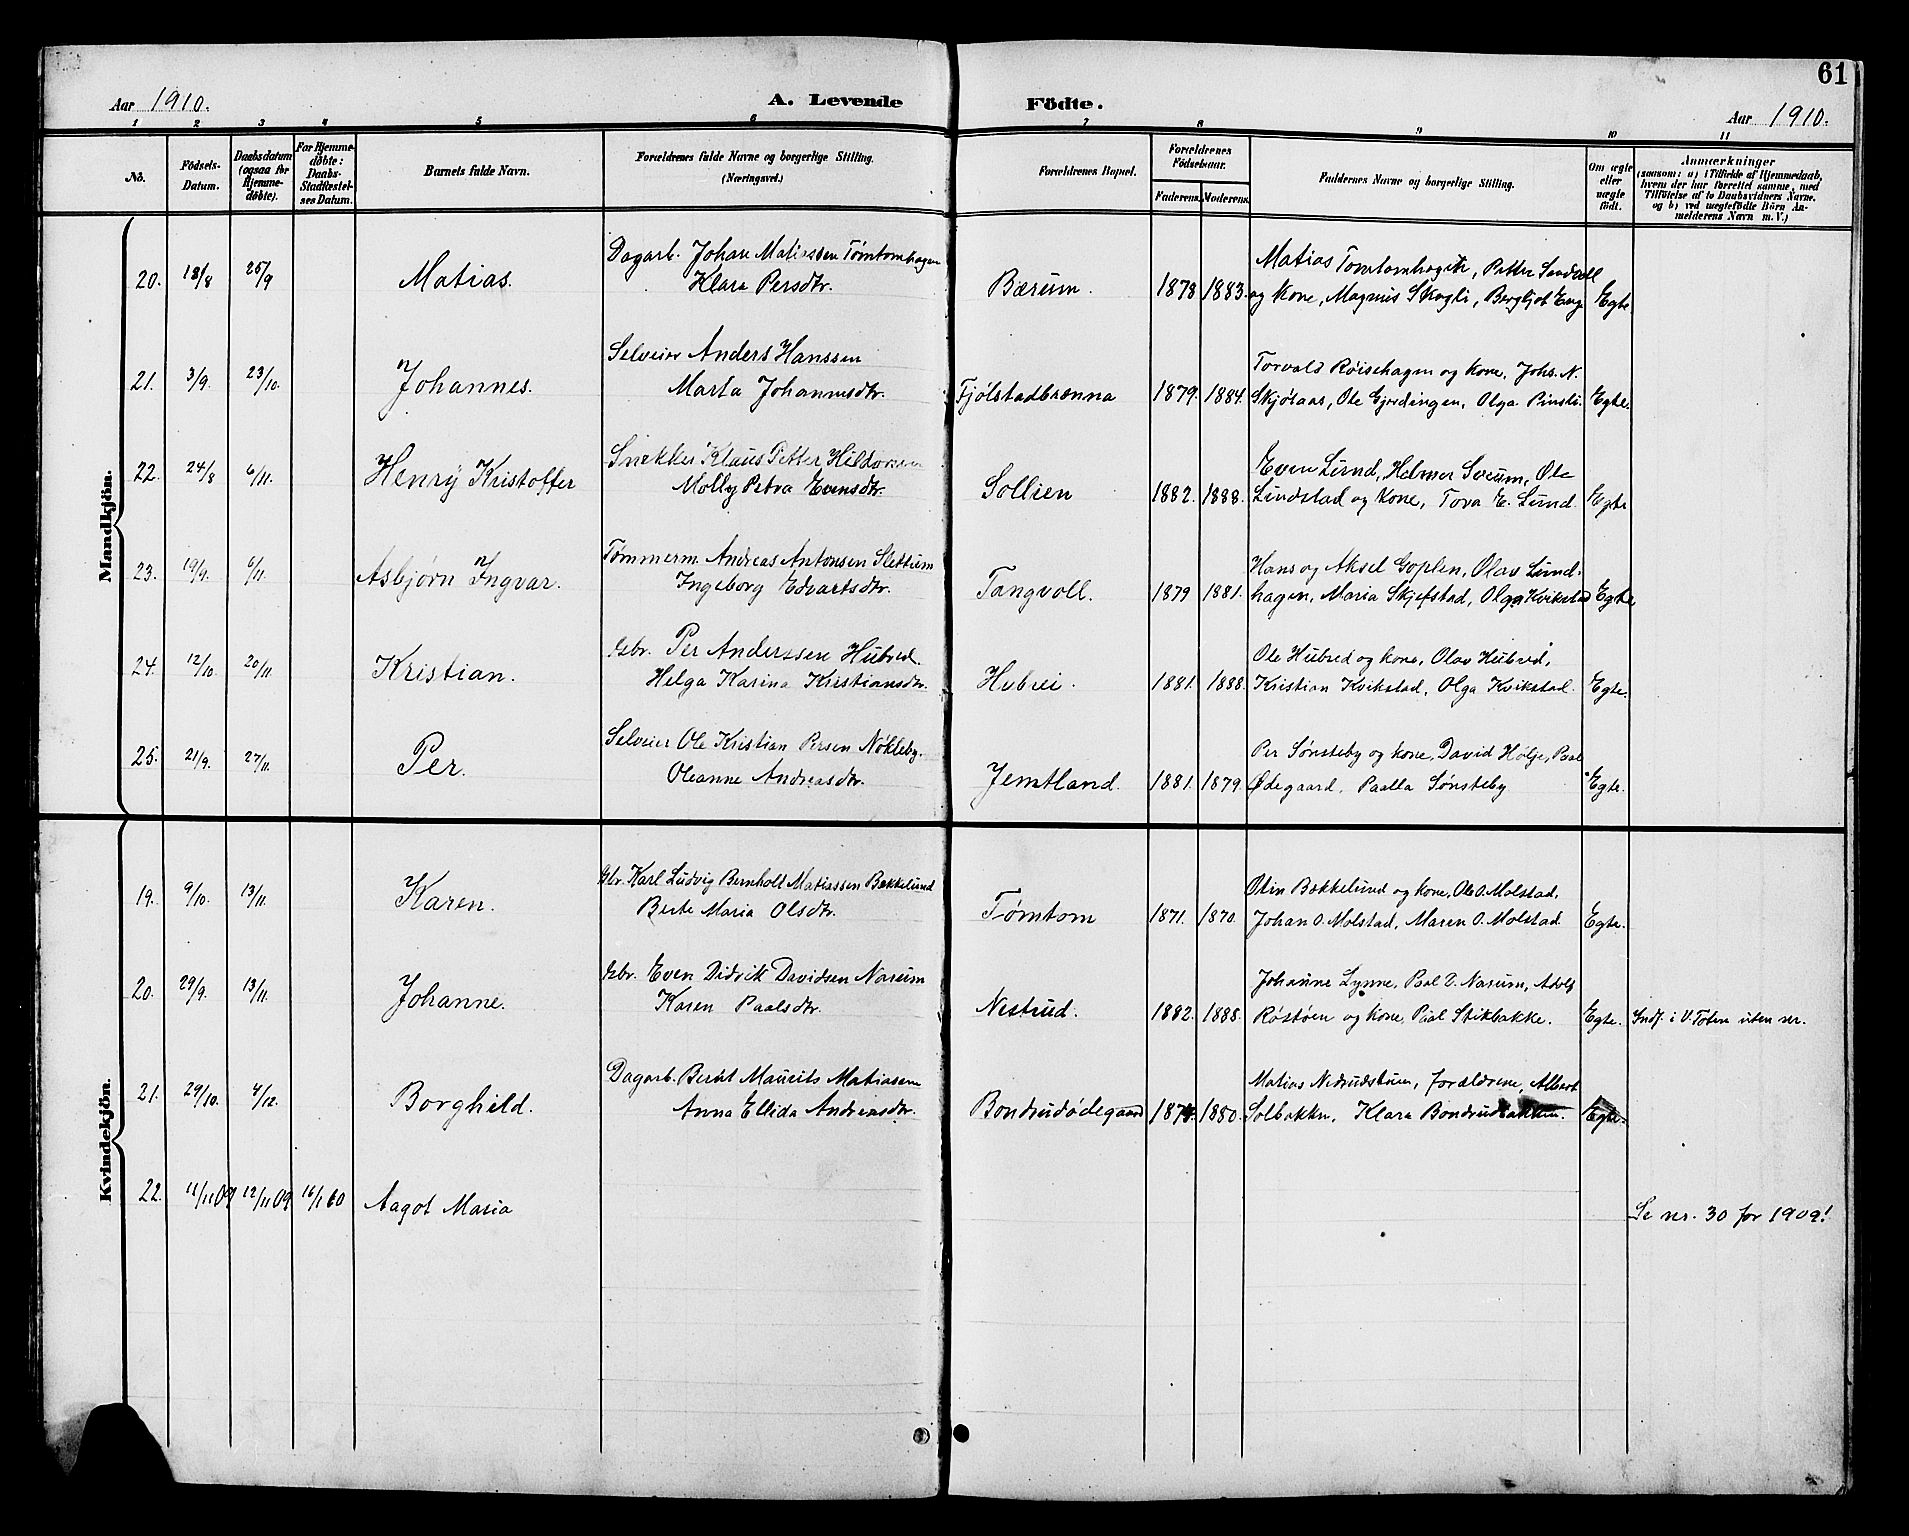 61
Aar 1910.
A. Levende Födte.
Aar 1910.
1 2 3 4 5 6 7 8 9 10 11
No.
Födsels-
Datum.
Daabsdatum
(ogsaa for
Hjemme-
döbte).
For Hjemme-
döbte:
Daabs-
Stadfæstel-
ses Datum.
Barnets fulde Navn.
Forældrenes fulde Navne og borgerlige Stilling.
(Næringsvei.)
Forældrenes Bopæl.
Forældrenes
Födselsaar.
Faderens. Moderens.
Faddernes Navne og borgerlige Stilling.
Om ægte
eller
uægte
födt.
Anmærkninger
(saasom: a) i Tilfælde af Hjemmedaab,
hvem der har forrettet samme, med
Tilföielse af to Daabsvidners Navne.
og b) ved uægtefödte Börn An-
melderens Navn m. V.)
Mandkjön.
20. 18/8 25/9 Matias. Dagarb. Johan Matiassen Tømtomhagen
Klara Persdtr. Bærum. 1878 1883. Matias Tomtomhagen, Petter Sandvoll
og kone, Magnus Skogli, Bergljot Enge Egte.
21. 3/9. 23/10. Johannes. Selveier Anders Hanssen
Marta Johannesdtr. Fjølstadbrænna 1879. 1884. Torvald Røisehagen og kone, Johs. N.
Skjølaas, Ole Gjerdingen, Olga Pinsli. Egte.
22. 24/8 6/11. Henry Kristoffer Snekker Klaus Petter Hildorsen
Molly Petra Evensdtr. Sollien 1882. 1888. Even Lund, Helmer Sveum, Ole
Lundstad og kone, Tova E. Lund. Egte
23. 19/9. 6/11. Asbjørn Ingvar. Tømmerm. Andreas Antonsen Slettum
Ingeborg Edvartsdtr. Tangvoll. 1879 1881. Hans og Aksel Goplen, Olav Lund-
hagen, Maria Skjefstad, Olga Kvikstad Egte
24. 12/10. 20/11. Kristian. Gbr. Per Anderssen Hubred.
Helga Karina Kristiansdtr. Hubrei. 1881. 1888. Ole Hubred og kone, Olav Hubred,
Kristian Kvikstad, Olga Kvikstad. Egte.
25. 21/9. 27/11. Per. Selveier Ole Kristian Persen Nøkleby.
Oleanne Andreasdtr. Jemtland. 1881. 1879. Per Sønsteby og kone, David Holje, Paal
Ødegaard, Paalla Sønsteby Egte.
Kvindekjön.
19. 9/10. 13/11. Karen. Gbr. Karl Ludvig Bernholt Matiassen Bækkelund
Berte Maria Olsdtr. Tømtom 1871. 1870. Otin Bækkelund og kone, Ole O. Molstad,
Johan O. Molstad, Maren O. Molstad. Egte.
20. 29/9. 13/11. Johanne. Gbr. Even Didrik Davidsen Narum
Karen Paalsdtr. Nestrud. 1882. 1888. Johanne Lynne, Paal D. Narum, Adolf
Røstøen og kone, Paal Stikbakke. Egte. Indf. i V. Toten uten nr.
21. 29/10. 4/12. Borghild. Dagarb. Bernt Maurits Matiassen
Anna Ellida Andreasdtr. Bondrudødegaard 1874. 1880. Matias Nedrudstuen, forældrene, Albert
Solbakken, Klara Bondrudbakken. Egte.
22. 11/11 09 12/11 09 16/1 60 Aagot Maria Se nr. 30 for 1909!